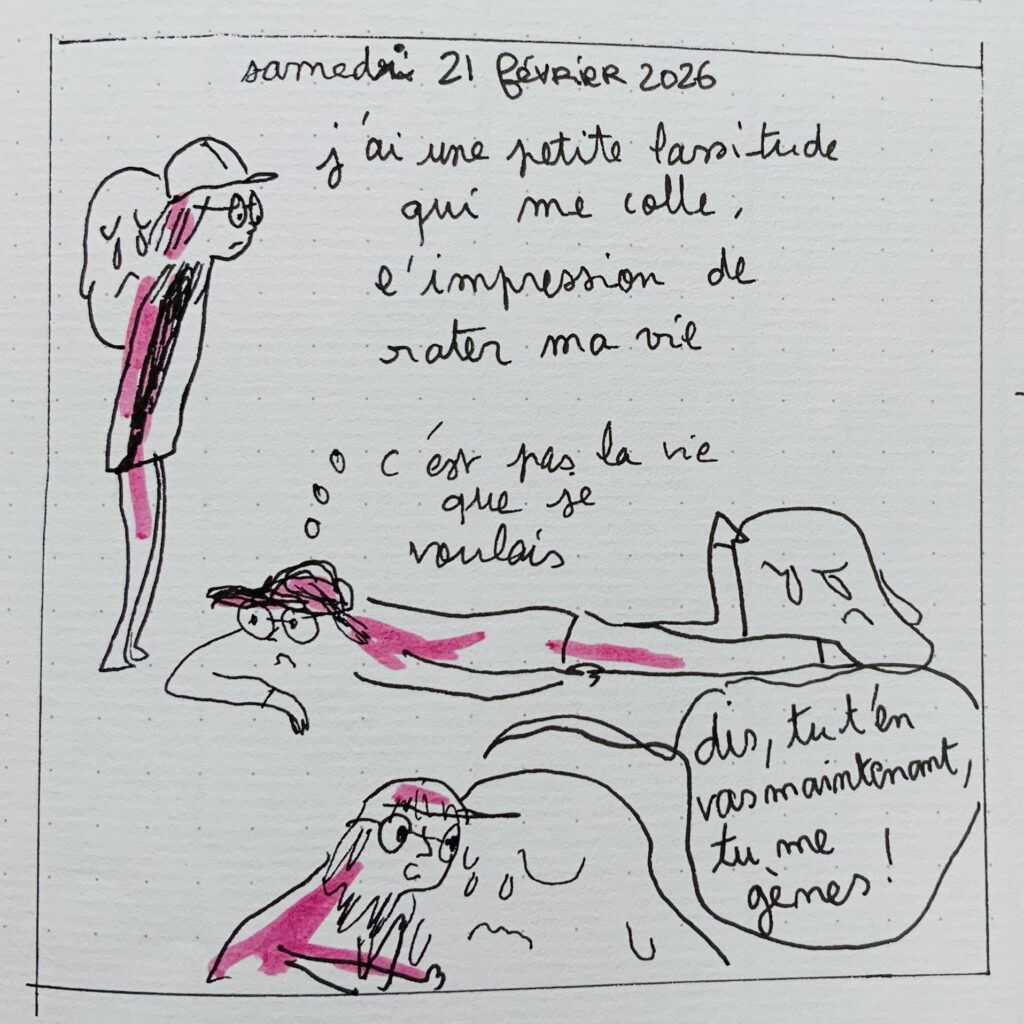 samedi 21 février 2026
j'ai une petite lassitude
qui me colle,
l'impression de
rater ma vie
c'est pas la vie
que je
voulais
dis, tu t'en
vas maintenant,
tu me
gènes !